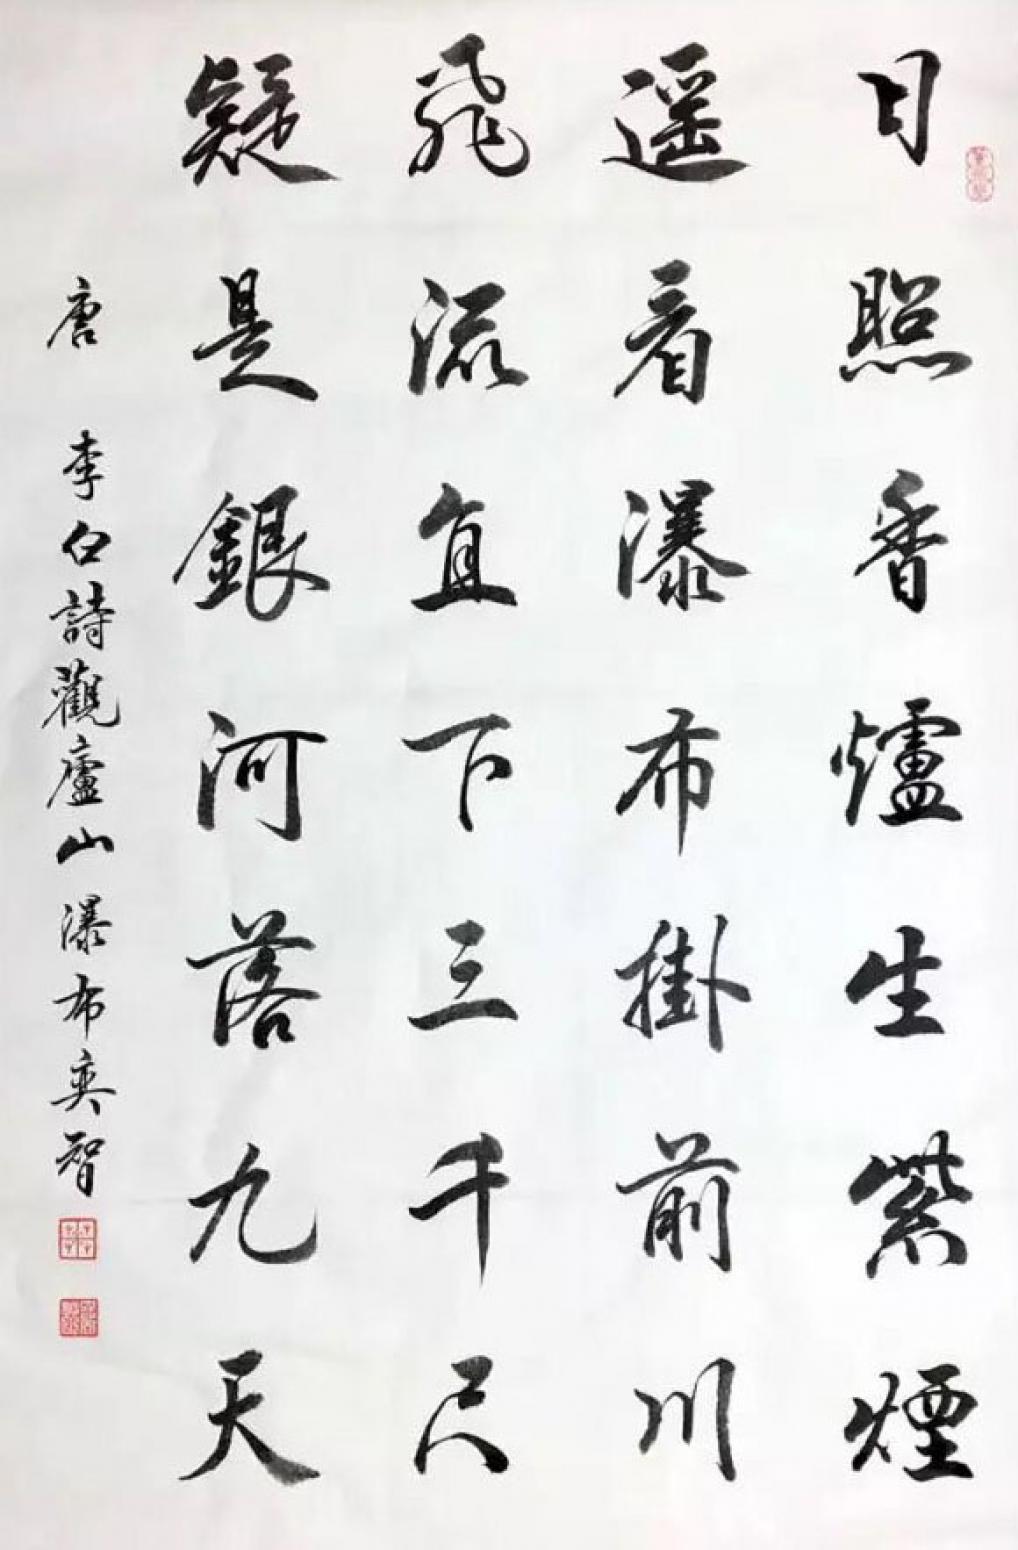 日照香爐生紫煙
遥看瀑布掛前川
飛流直下三千尺
疑是銀河落九天
唐 李白詩觀廬山瀑布奕智